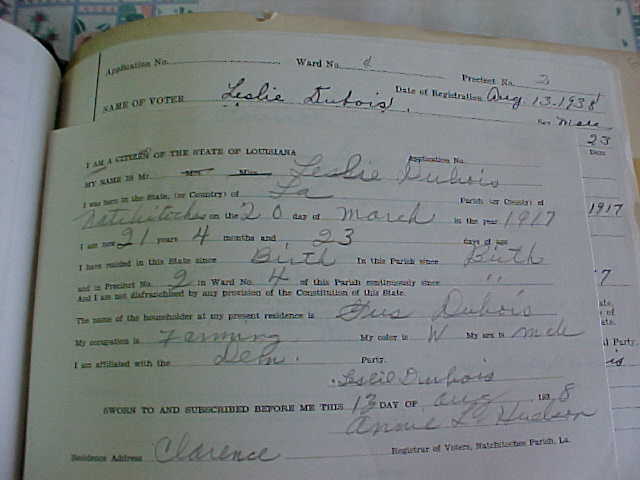 Application No. Ward No. 4 Precinct No. 2
NAME OF VOTER Leslie Dubois Date of Registration Aug 13-1938
Sex Male
23
Days
I AM A CITIZEN OF THE STATE OF LOUISIANA Application No.
MY NAME IS Mr. Mrs. Miss Leslie Dubois
I was born in the State, (or Country) of La Parish (or County) of
Natchitoches on the 20 day of March in the year 1917
1917
I am now 21 years 4 months and 23 days of age
I have resided in this State since Birth In this Parish since Birth
and in Precinct No. 2 in Ward No. 4 of this Parish continuously since " 
And I am not disfranchised by any provision of the Constitution of this State.
The name of the householder at my present residence is Gus Dubois
My occupation is Farming My color is W My sex is male
I am affiliated with the Dem. Party.
Party.
Leslie Dubois
SWORN TO AND SUBSCRIBED BEFORE ME THIS 13 DAY OF Aug 1938
Annie L. Hudson
Residence Address Clarence Registrar of Voters, Natchitoches Parish, La.